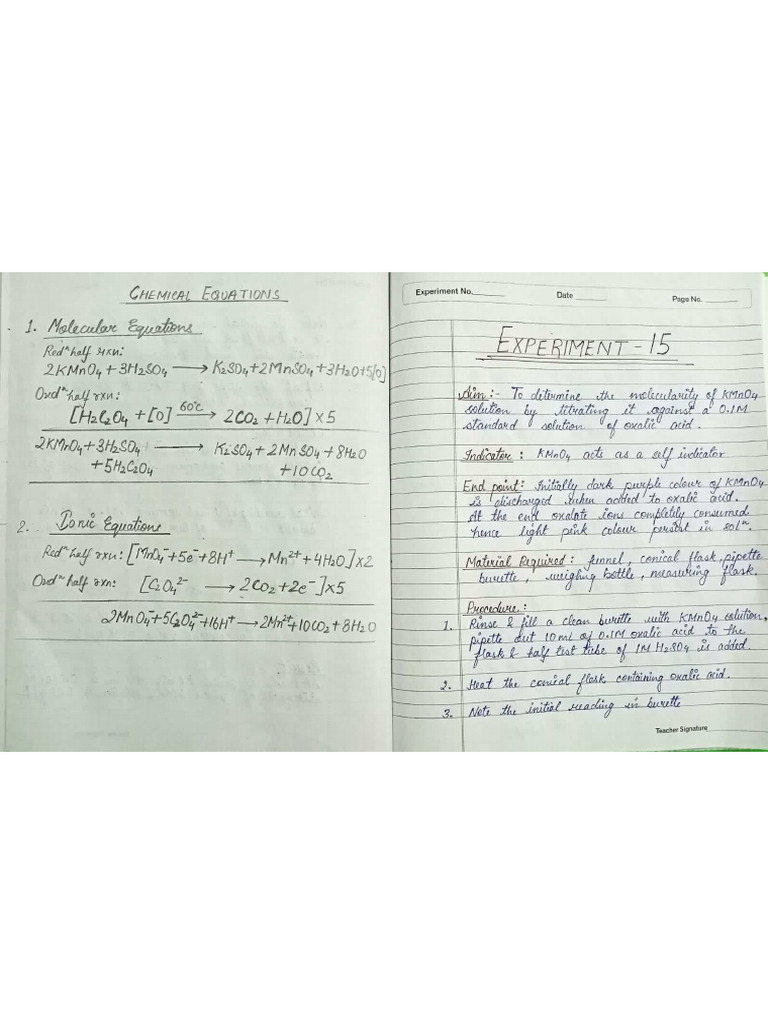 CHEMICAL EQUATIONS
1. Molecular Equations
Redⁿ half rxn:
2KMnO₄ + 3H₂SO₄ → K₂SO₄ + 2MnSO₄ + 3H₂O + 5[O]
Oxdⁿ half rxn:
[H₂C₂O₄ + [O] 60°C → 2CO₂ + H₂O] × 5
2KMnO₄ + 3H₂SO₄ → K₂SO₄ + 2MnSO₄ + 8H₂O
+ 5H₂C₂O₄ + 10CO₂
2. Ionic Equations
Redⁿ half rxn: [MnO₄⁻ + 5e⁻ + 8H⁺ → Mn²⁺ + 4H₂O] × 2
Oxdⁿ half rxn: [C₂O₄²⁻ → 2CO₂ + 2e⁻] × 5
2MnO₄⁻ + 5C₂O₄²⁻ + 16H⁺ → 2Mn²⁺ + 10CO₂ + 8H₂O
Experiment No.
Date
Page No.
EXPERIMENT - 15
Aim:- To determine the molecularity of KMnO₄
solution by titrating it against a 0.1M
standard solution of oxalic acid.
Indicator : KMnO₄ acts as a self indicator
End point: Initially dark purple colour of KMnO₄
is discharged when added to oxalic acid.
At the end oxalate ions completly consumed
hence light pink colour persist in solⁿ.
Material Required : funnel, conical flask, pipette
burette, weighing bottle, measuring flask.
Procedure :
1. Rinse & fill a clean burette with KMnO₄ solution,
pipette out 10 ml of 0.1M oxalic acid to the
flask & half test tube of 1M H₂SO₄ is added.
2. Heat the conical flask containing oxalic acid.
3. Note the initial reading in burette
Teacher Signature